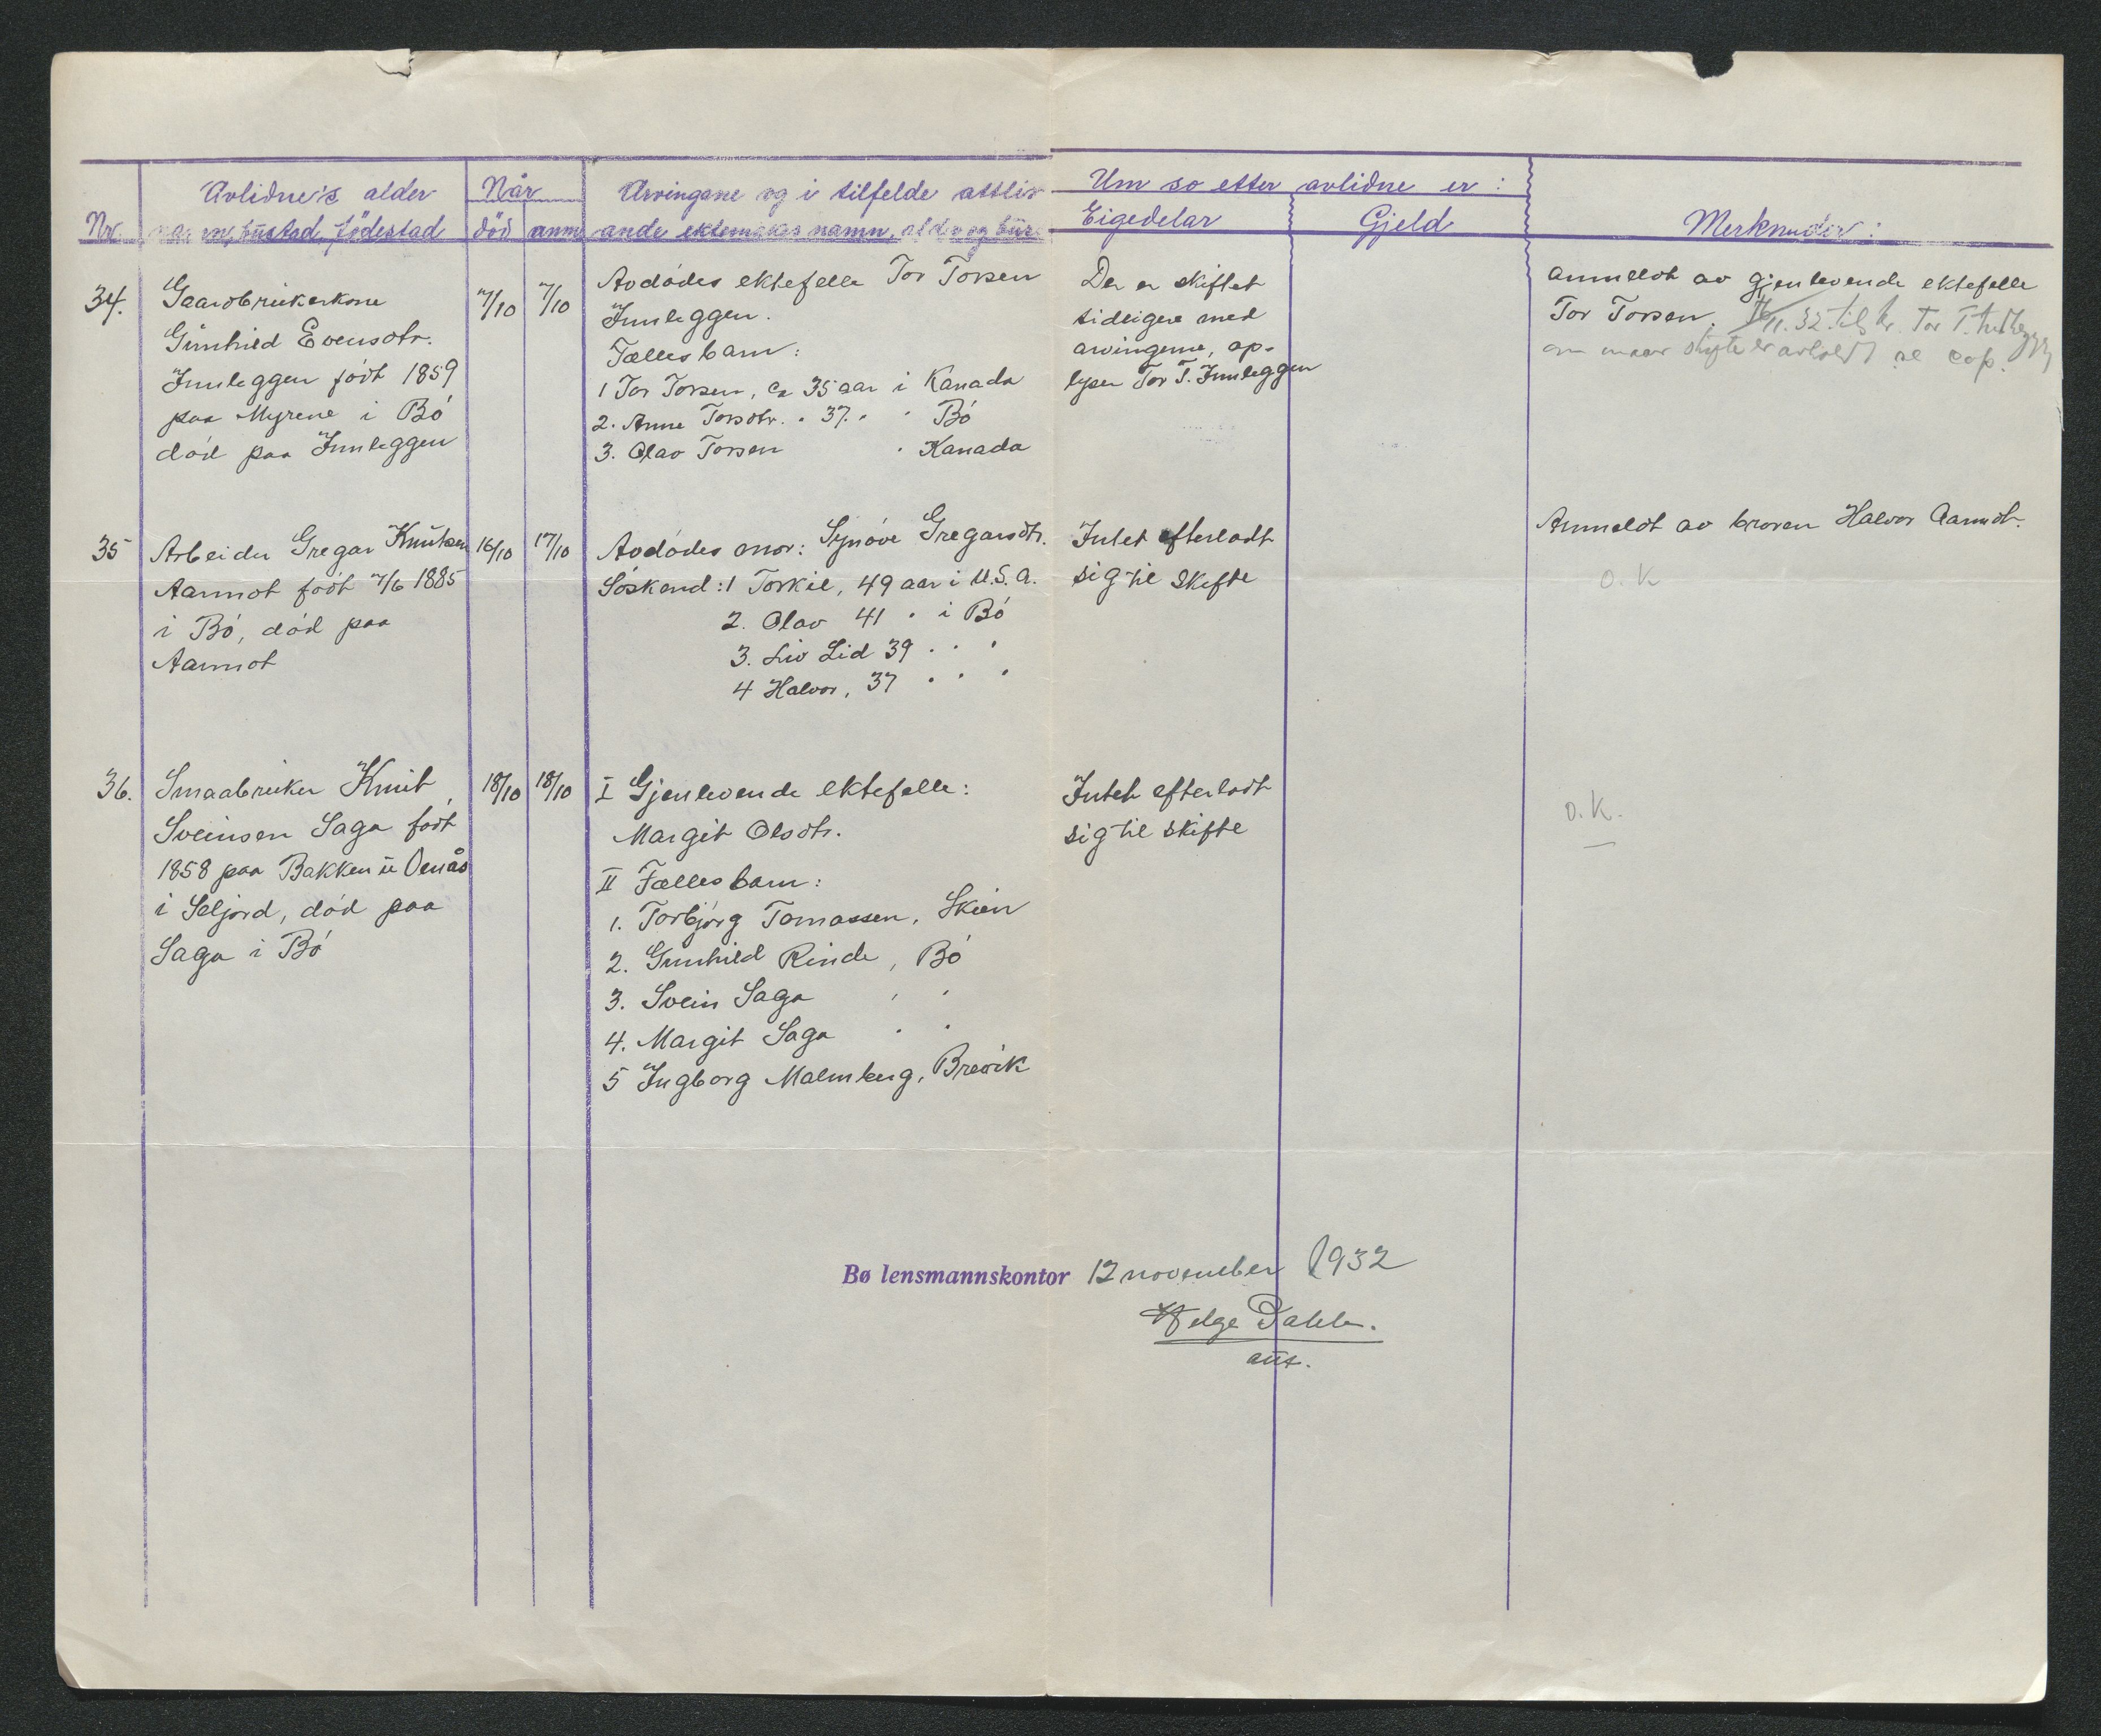 Nr.
Avlidne's alder
namn, bustad, födestad
Når
död
anm
Arvingane og i tilfelde attliv-
ande ektemakes namn, alder og bus
Um so etter avlidne er:
Eigedelar
Gjeld
Merknader:
34.
Gaardbrukerkone
Gunhild Evensdtr.
Innleggen födt 1859
paa Myrene i Bö
död paa Innleggen
7/10
7/10
Avdödes ektefelle Tor Torsen
Innleggen.
Fællesbarn:
1 Tor Torsen, ca 35 aar i Kanada
2. Anne Torsdtr. " 37 " " Bö
3. Olav Torsen " Kanada
Der er skiftet
tidligere med
arvingerne, op-
lyser Tor T. Innleggen
Anmeldt av gjenlevende ektefelle
Tor Torsen. /11.32 til hr. Tor T.
om naar skifte er avholdt
35
Arbeider Gregar Knutsen
Aarmot födt 7/6 1885
i Bö, död paa
Aarmot
16/10
17/10
Avdödes mor: Synöve Gregarsdtr.
Söskend: 1 Torkil, 49 aar i U.S.A.
2. Olav 41 " i Bö
3. Liv Lid 39 " " "
4 Halvor, 37 " " "
Intet efterladt
sig til skifte
Anmeldt av broren Halvor Aarmot.
O.K
36.
Smaabruker Knut
Sveinsen Saga födt
1858 paa Bakken u Oenås
i Seljord, död paa
Saga i Bö
18/10
18/10
I Gjenlevende ektefelle:
Margit Olsdtr.
II Fællesbarn:
1. Torbjörg Tomassen, Skien
2. Gunhild Rinde, Bö
3. Svein Saga " "
4. Margit Saga " "
5 Ingborg Malmberg, Brevik
Intet efterladt
sig til skifte
O.K.
Bø lensmannskontor 12 november 1932
Helge Dahle.
aut.